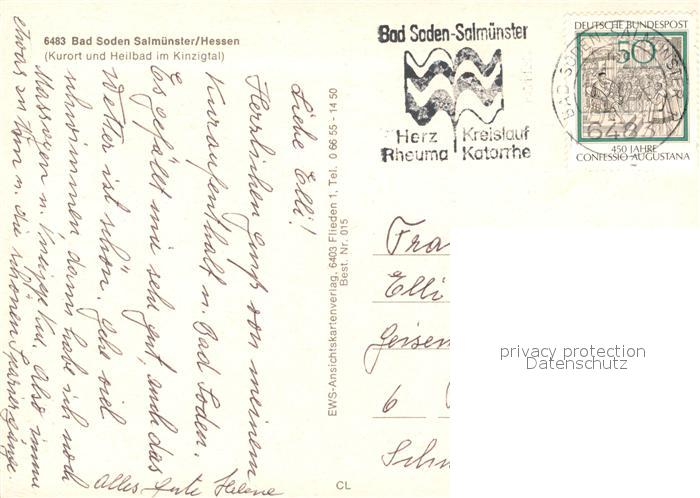 6483 Bad Soden Salmünster/Hessen
(Kurort und Heilbad im Kinzigtal)
Liebe Elli!
Herzlichen Gruß von meinem
Kuraufenthalt in Bad Soden.
Es gefällt mir sehr gut, auch das
Wetter ist schön. Gehe viel
schwimmen, dann habe ich noch
Massagen u. Kneipp Kur. Also immer
etwas zu tun u. die schönen Spaziergänge.
Alles Gute Helene
EWS-Ansichtskartenverlag, 6403 Flieden 1, Tel. 0 66 55 - 14 50
Best. Nr. 015
CL
Bad Soden-Salmünster
Herz Kreislauf
Rheuma Katarrhe
DEUTSCHE BUNDESPOST
50
450 JAHRE
CONFESSIO AUGUSTANA
BAD SODEN-SALMÜNSTER
6483
Fra
Elli
Geisen
6
Schn
privacy protection
Datenschutz